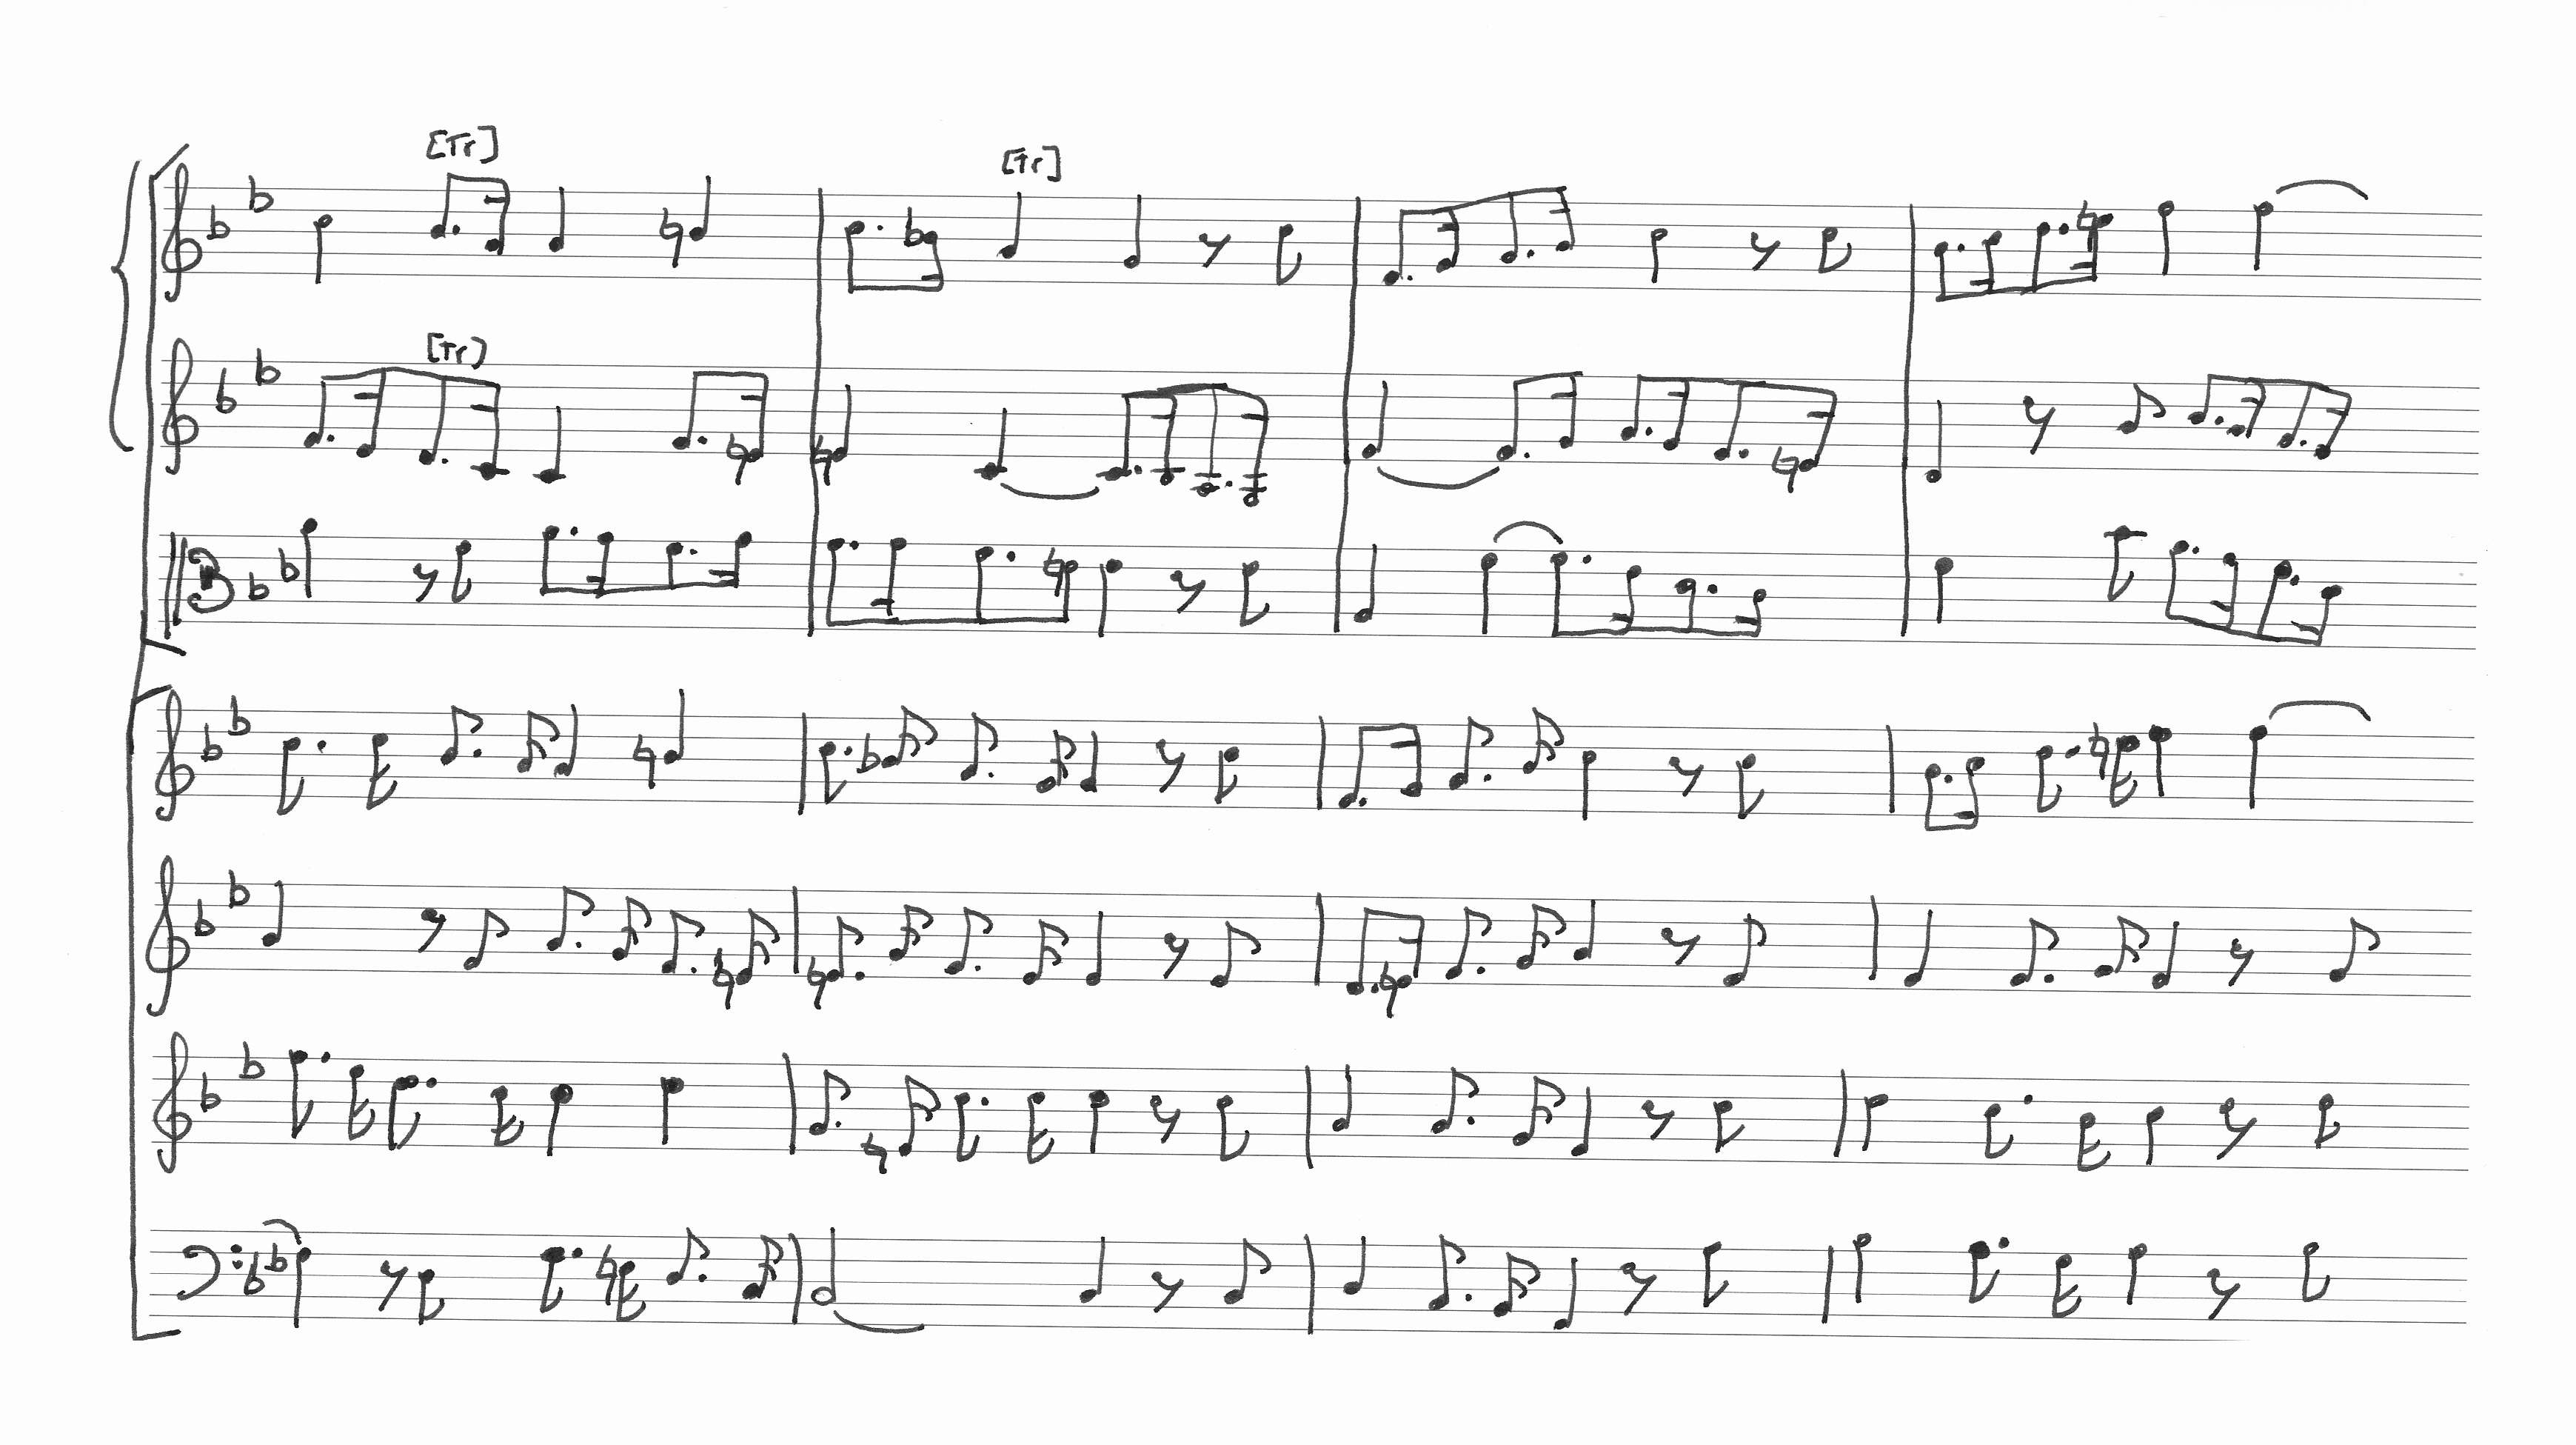 [Tr] [Tr]
[Tr)